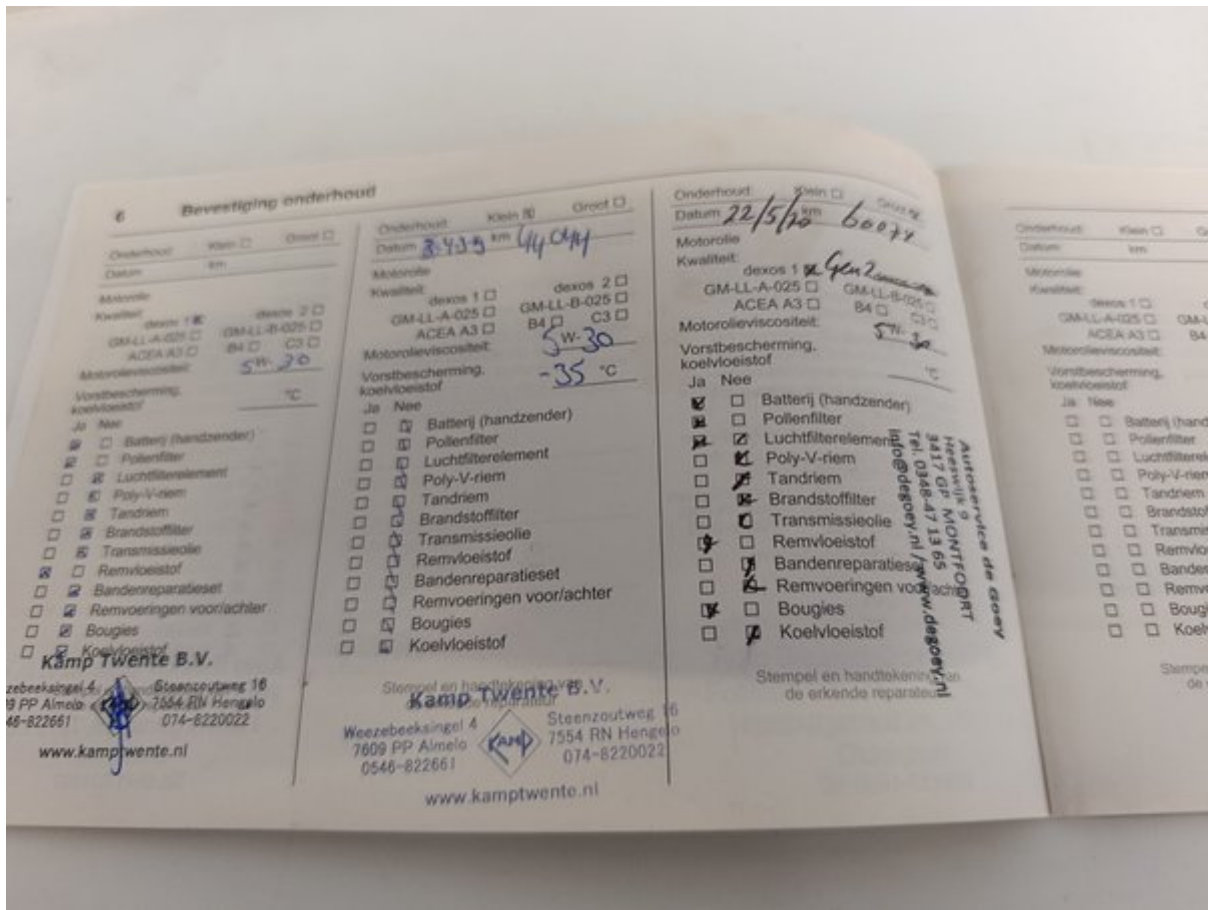 6 Bevestiging onderhoud
Onderhoud: Klein Groot
Datum km
Motorolie
Kwaliteit:
dexos 1 dexos 2
GM-LL-A-025 GM-LL-B-025
ACEA A3 B4 C3
Motorolieviscositeit: 5W-30
Vorstbescherming,
koelvloeistof °C
Ja Nee
Batterij (handzender)
Pollenfilter
Luchtfilterelement
Poly-V-riem
Tandriem
Brandstoffilter
Transmissieolie
Remvloeistof
Bandenreparatieset
Remvoeringen voor/achter
Bougies
Koelvloeistof
Kamp Twente B.V.
Steenzoutweg 16
PP Almelo KAMP 7554 RN Hengelo
46-822661 074-8220022
www.kamptwente.nl
Onderhoud: Klein Groot
Datum km 44.044
Motorolie
Kwaliteit:
dexos 1 dexos 2
GM-LL-A-025 GM-LL-B-025
ACEA A3 B4 C3
Motorolieviscositeit: 5W-30
Vorstbescherming,
koelvloeistof -35 °C
Ja Nee
Batterij (handzender)
Pollenfilter
Luchtfilterelement
Poly-V-riem
Tandriem
Brandstoffilter
Transmissieolie
Remvloeistof
Bandenreparatieset
Remvoeringen voor/achter
Bougies
Koelvloeistof
Stempel en handtekening van
de erkende reparateur
Kamp Twente B.V.
Weezebeeksingel 4 Steenzoutweg 16
7609 PP Almelo KAMP 7554 RN Hengelo
0546-822661 074-8220022
www.kamptwente.nl
Onderhoud: Klein Groot
Datum 22/5/20 km 60074
Motorolie
Kwaliteit:
dexos 1 Gen 2
GM-LL-A-025 GM-LL-B-025
ACEA A3 B4 C3
Motorolieviscositeit: 5W-30
Vorstbescherming,
koelvloeistof °C
Ja Nee
Batterij (handzender)
Pollenfilter
Luchtfilterelement
Poly-V-riem
Tandriem
Brandstoffilter
Transmissieolie
Remvloeistof
Bandenreparatieset
Remvoeringen voor/achter
Bougies
Koelvloeistof
Stempel en handtekening van
de erkende reparateur
Autoservice de Goey
Heeswijk 9
3417 GP MONTFOORT
Tel. 0348-47 13 65
info@degoey.nl / www.degoey.nl
Onderhoud: Klein
Datum km
Motorolie
Kwaliteit:
dexos 1
GM-LL-A-025 GM-L
ACEA A3 B4
Motorolieviscositeit:
Vorstbescherming,
koelvloeistof
Ja Nee
Batterij (hand
Pollenfilter
Luchtfilterele
Poly-V-riem
Tandriem
Brandstof
Transmis
Remvloe
Banden
Remvo
Bougi
Koelv
Stempe
de